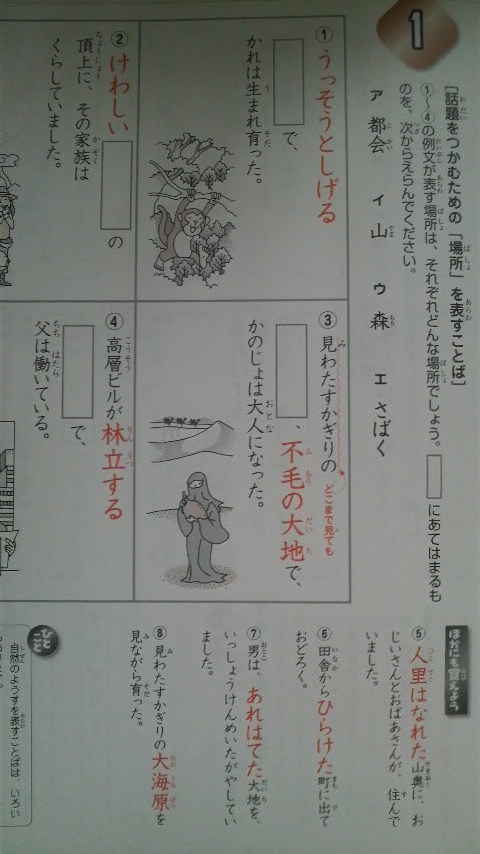 1
[話題をつかむための「場所」を表すことば]
①～④の例文が表す場所は、それぞれどんな場所でしょう。□にあてはまるも
のを、次からえらんでください。
ア 都会 イ 山 ウ 森 エ さばく
① うっそうとしげる
□で、
かれは生まれ育った。
② けわしい□の
頂上に、その家族は
くらしていました。
③ 見わたすかぎりの
どこまで見ても
□、不毛の大地で、
かのじょは大人になった。
④ 高層ビルが林立する
□で、
父は働いている。
ほかにも覚えよう
⑤ 人里はなれた山奥に、お
じいさんとおばあさんが、住んで
いました。
⑥ 田舎からひらけた町に出て
おどろく。
⑦ 男は、あれはてた大地を、
いっしょうけんめいたがやしてい
ました。
⑧ 見わたすかぎりの大海原を
見ながら育った。
ひとこと
自然のようすを表すことばは、いろい